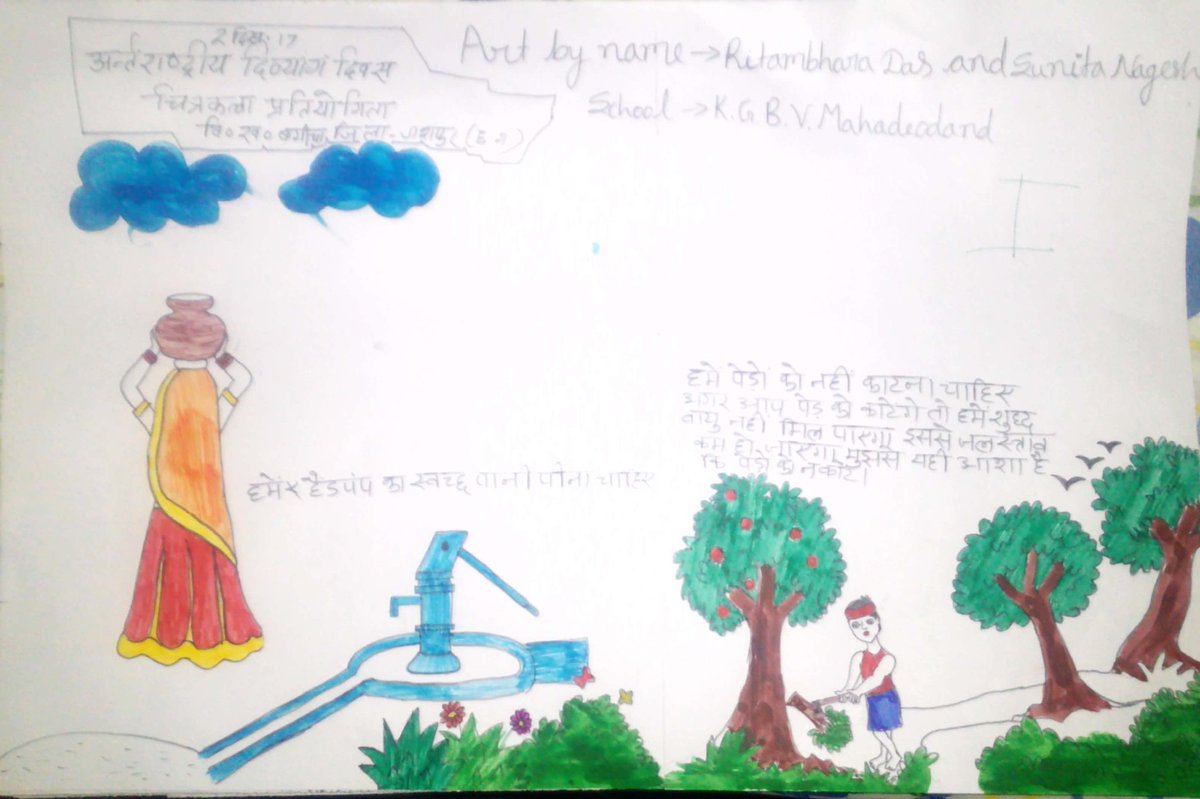 2 दिस. 17
अर्न्तराष्ट्रीय दिव्यांग दिवस
चित्रकला प्रतियोगिता
वि० ख० बगीचा, जिला- जशपुर (छ.ग)
Art by name → Ritambhara Das and Sunita Nagesh
School → K.G.B.V. Mahadeodand
I
हमें पेडो को नहीं काटना चाहिए
अगर आप पेड़ को काटेंगे तो हमें शुद्ध
वायु नहीं मिल पाएगा इससे जल स्तर
कम हो जाएगा मुझसे यही आशा है
कि पेडो को न काटे।
हमें हैडपंप का स्वच्छ पानी पीना चाहिए